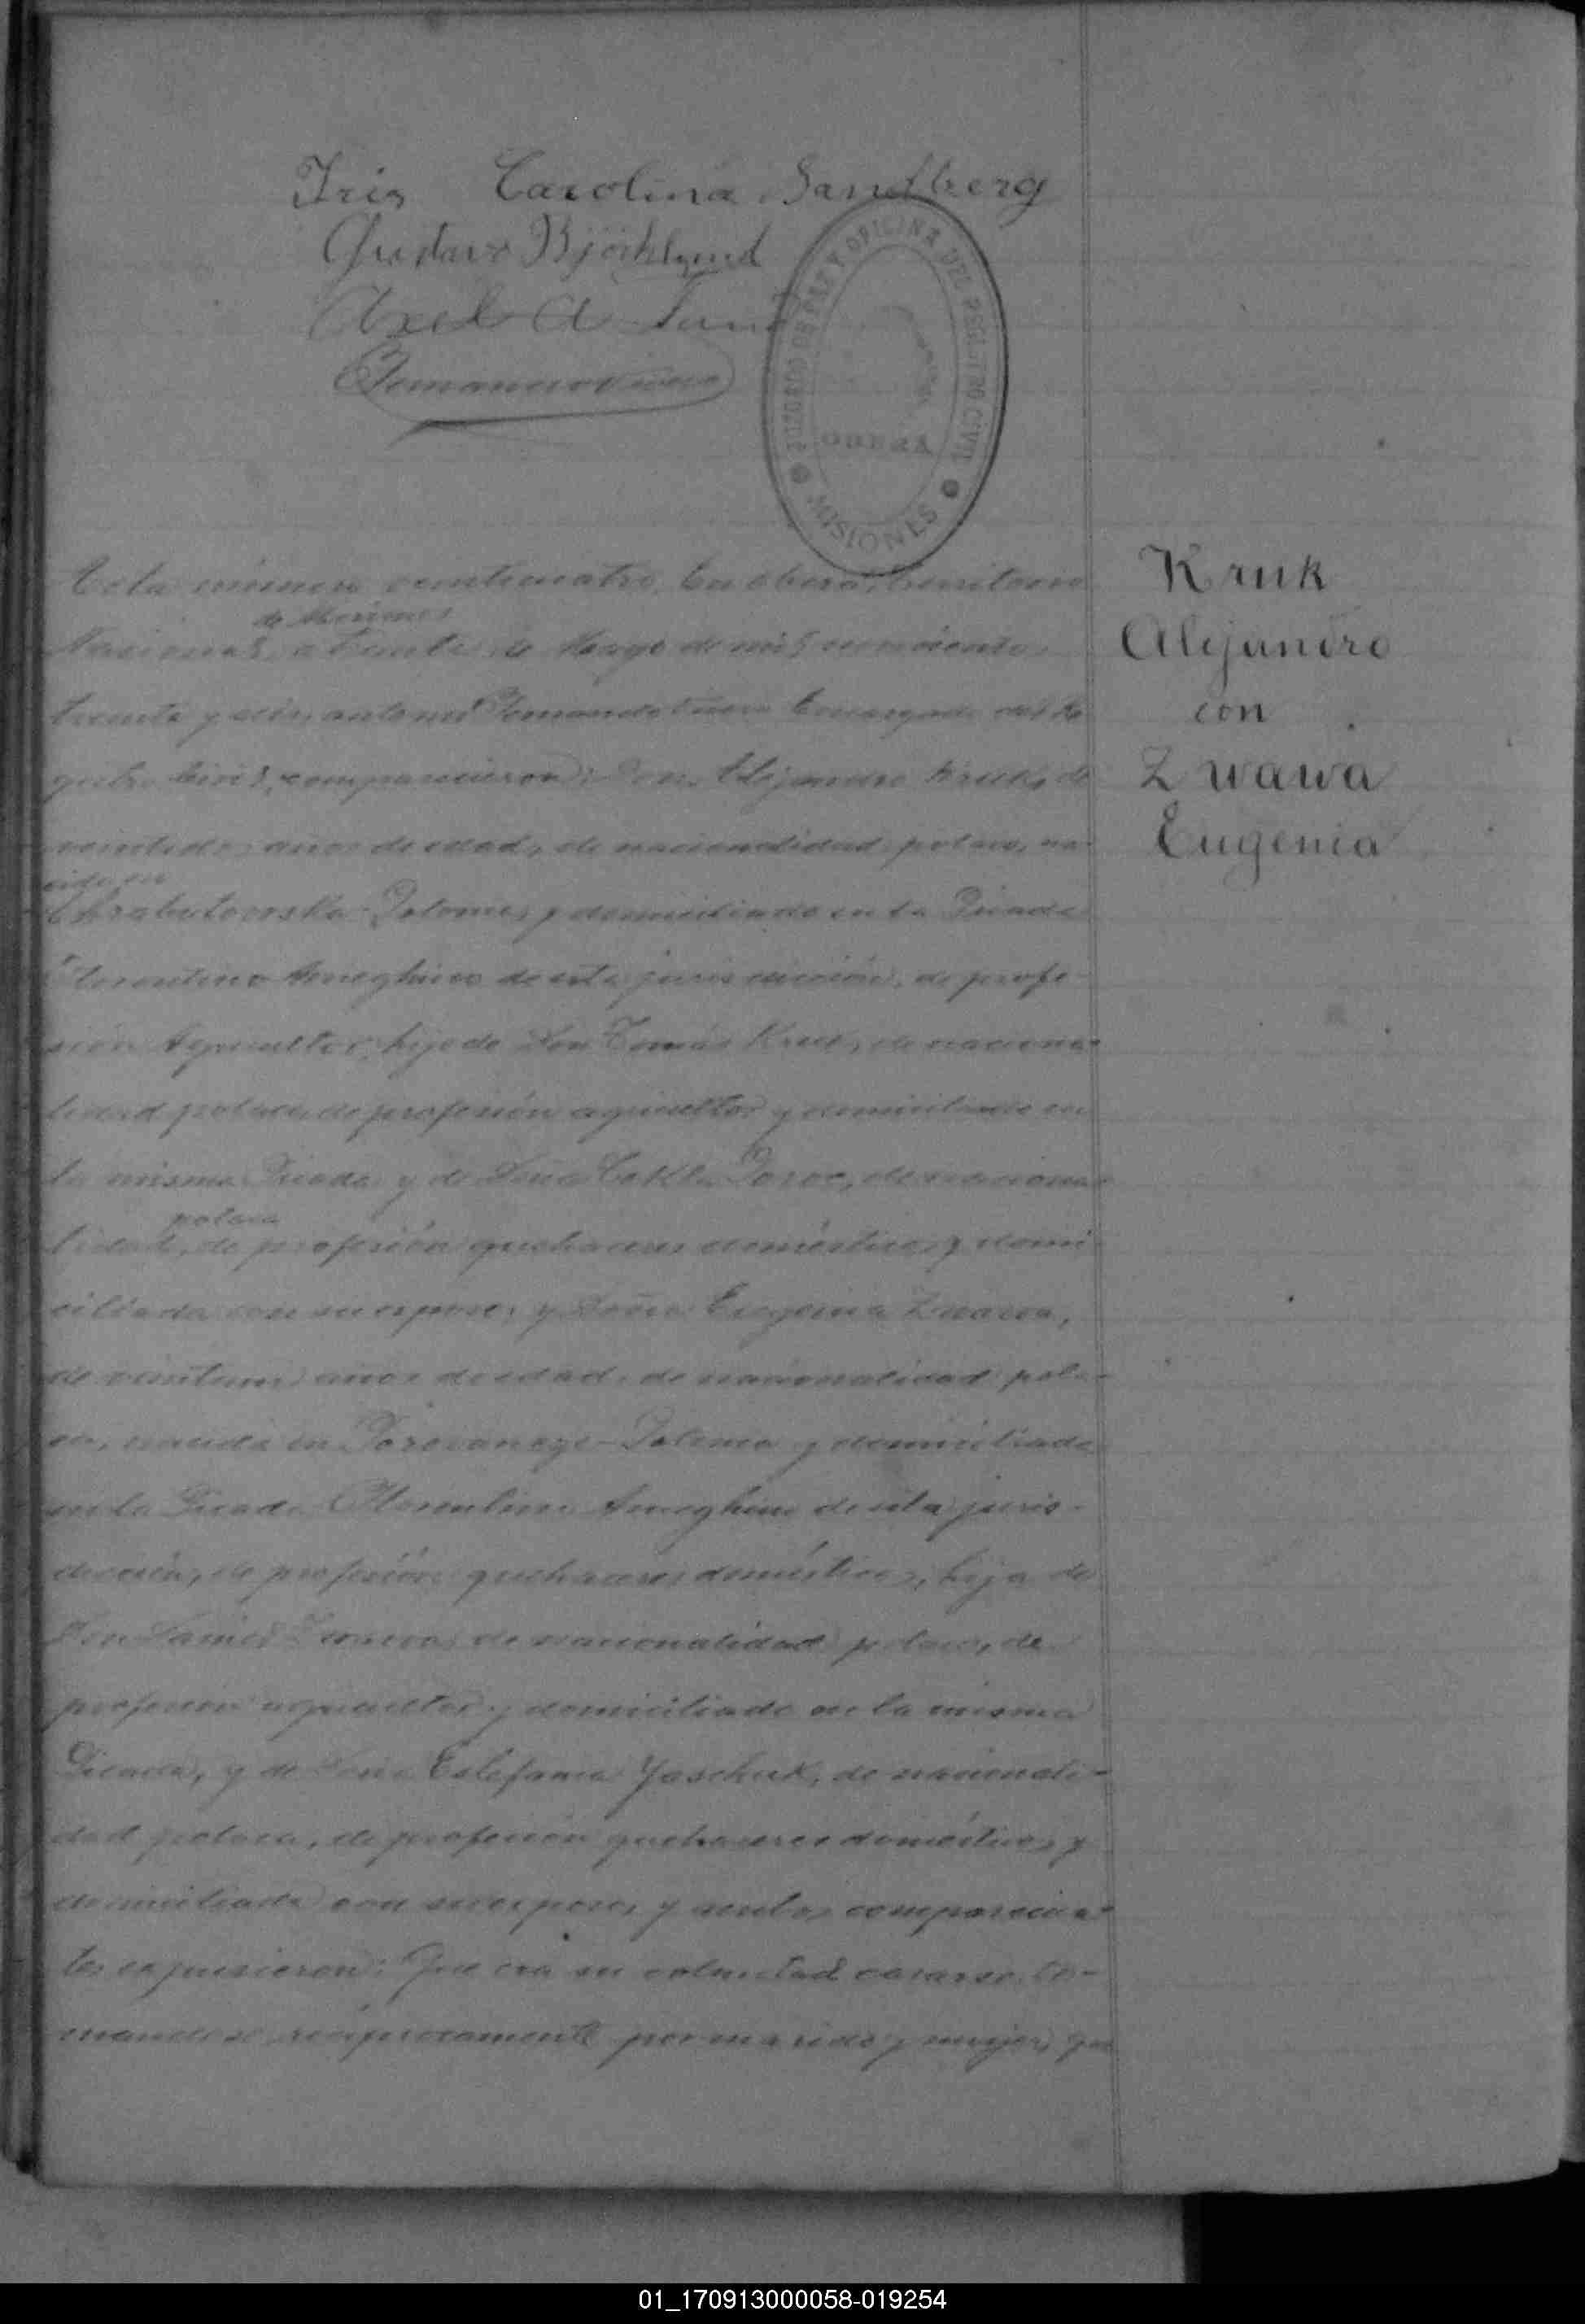 Iris Carolina Sandberg
Gustavo Björklund
Axel A
JUZGADO DE PAZ Y OFICINA DEL REGISTRO CIVIL
OBERÁ
MISIONES
Kruk
Alejandro
con
Zwawa
Eugenia
Acta número veinticuatro. En Oberá, territorio
de Misiones
Nacional, a treinta de Mayo de mil novecientos
treinta y seis, ante mí Encargado del Re
gistro Civil, comparecieron: Don Alejandro Kruk, de
veintidos años de edad, de nacionalidad polaca, na-
cido en
Polonia, y domiciliado en la Picada
Florentino Ameghino de esta jurisdicción, de profe-
sión Agricultor, hijo de Don Tomás Kruk, de naciona-
lidad polaca, de profesión agricultor y domiciliado en
la misma Picada y de Doña Tekla de naciona-
polaca
lidad, de profesión quehaceres domésticos, y domi-
ciliada con su esposo; y Doña Eugenia Zwawa,
de veintiun años de edad, de nacionalidad pola-
ca, nacida en Polonia y domiciliada
en la Picada Florentino Ameghino de esta juris-
dicción, de profesión quehaceres domésticos, hija de
Don de nacionalidad polaca, de
profesión agricultor y domiciliado en la misma
Picada, y de Doña Estefania Yaschuk, de nacionali-
dad polaca, de profesión quehaceres domésticos y
domiciliada con su esposo, y ambos comparecien-
tes expusieron: Que era su voluntad casarse to-
mandose reciprocamente por marido y mujer, que
01_170913000058-019254